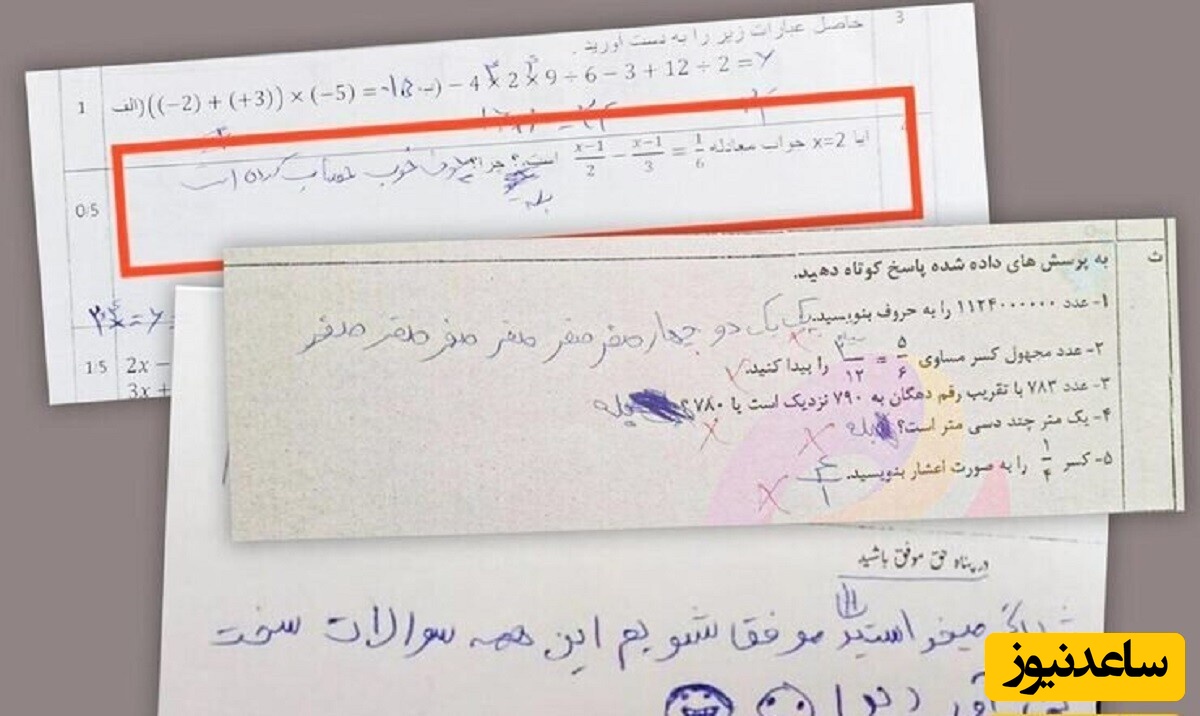 3
حاصل عبارات زیر را به دست اورید .
1
الف)((−2) + (+3)) × (−5) = -15 ب) − 4 × 2 × 9 ÷ 6 − 3 + 12 ÷ 2 = 7
ایا x=2 جواب معادله x−1/2 − x−1/3 = 1/6 است؟ چرا؟ خوب حساب کرده است
بله
0/5
1/5
2x −
3x +
ث
به پرسش های داده شده پاسخ کوتاه دهید.
۱- عدد ۱۱۲۴۰۰۰۰۰۰ را به حروف بنویسید. یک یک دو چهار صفر صفر صفر صفر صفر صفر
۲- عدد مجهول کسر مساوی ۵/۶ = ۱۰/۱۲ را پیدا کنید.
۳- عدد ۷۸۳ با تقریب رقم دهگان به ۷۹۰ نزدیک است یا ۷۸۰؟ بله
۴- یک متر چند دسی متر است؟ بله
۵- کسر ۱/۴ را به صورت اعشار بنویسید. ۴/۱
در پناه حق موفق باشید
اگر میخواستید موفق شویم این همه سوالات سخت
ساعدنیوز